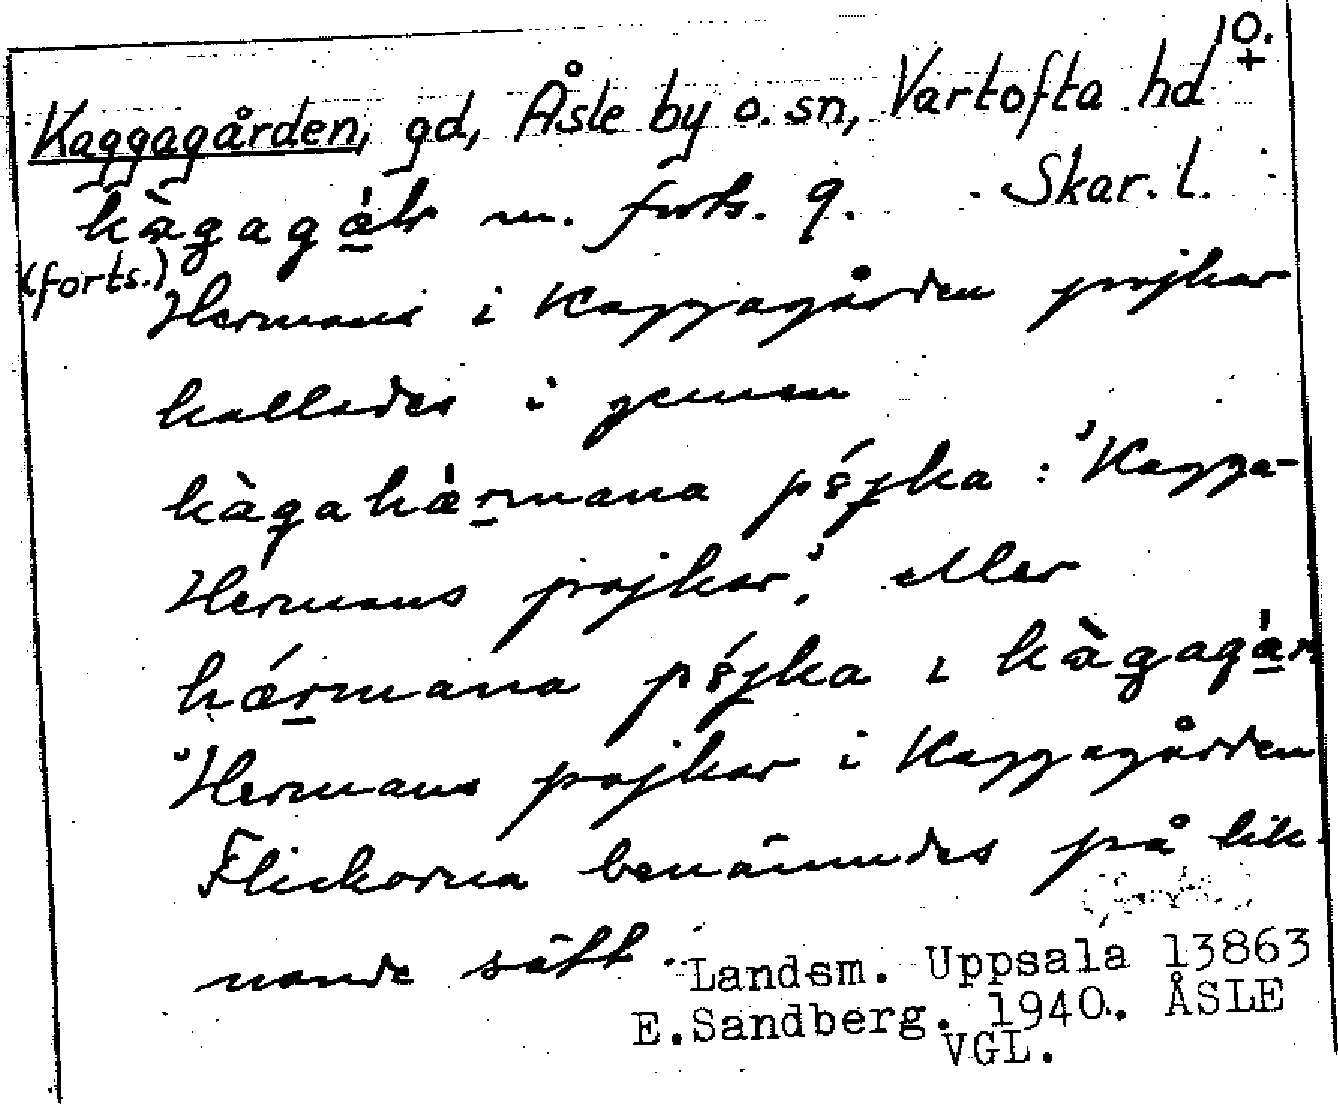 10.
Kaggagården, gd, Åsle by o. sn, Vartofta hd +
Skar. l.
kàgagáḷ m. forts. 9.
(forts.)
Hermans i Kaggagården pojkar
kallades i gemen
kàgahæ̀rmana pójka : 'Kagga-
Hermans pojkar', eller
hǽrmana pójka i kàgagáṛn
'Hermans pojkar i Kaggagården
Flickorna benämndes på lik-
nande sätt.
Landsm. Uppsala 13863
E.Sandberg. 1940. ÅSLE
VGL.